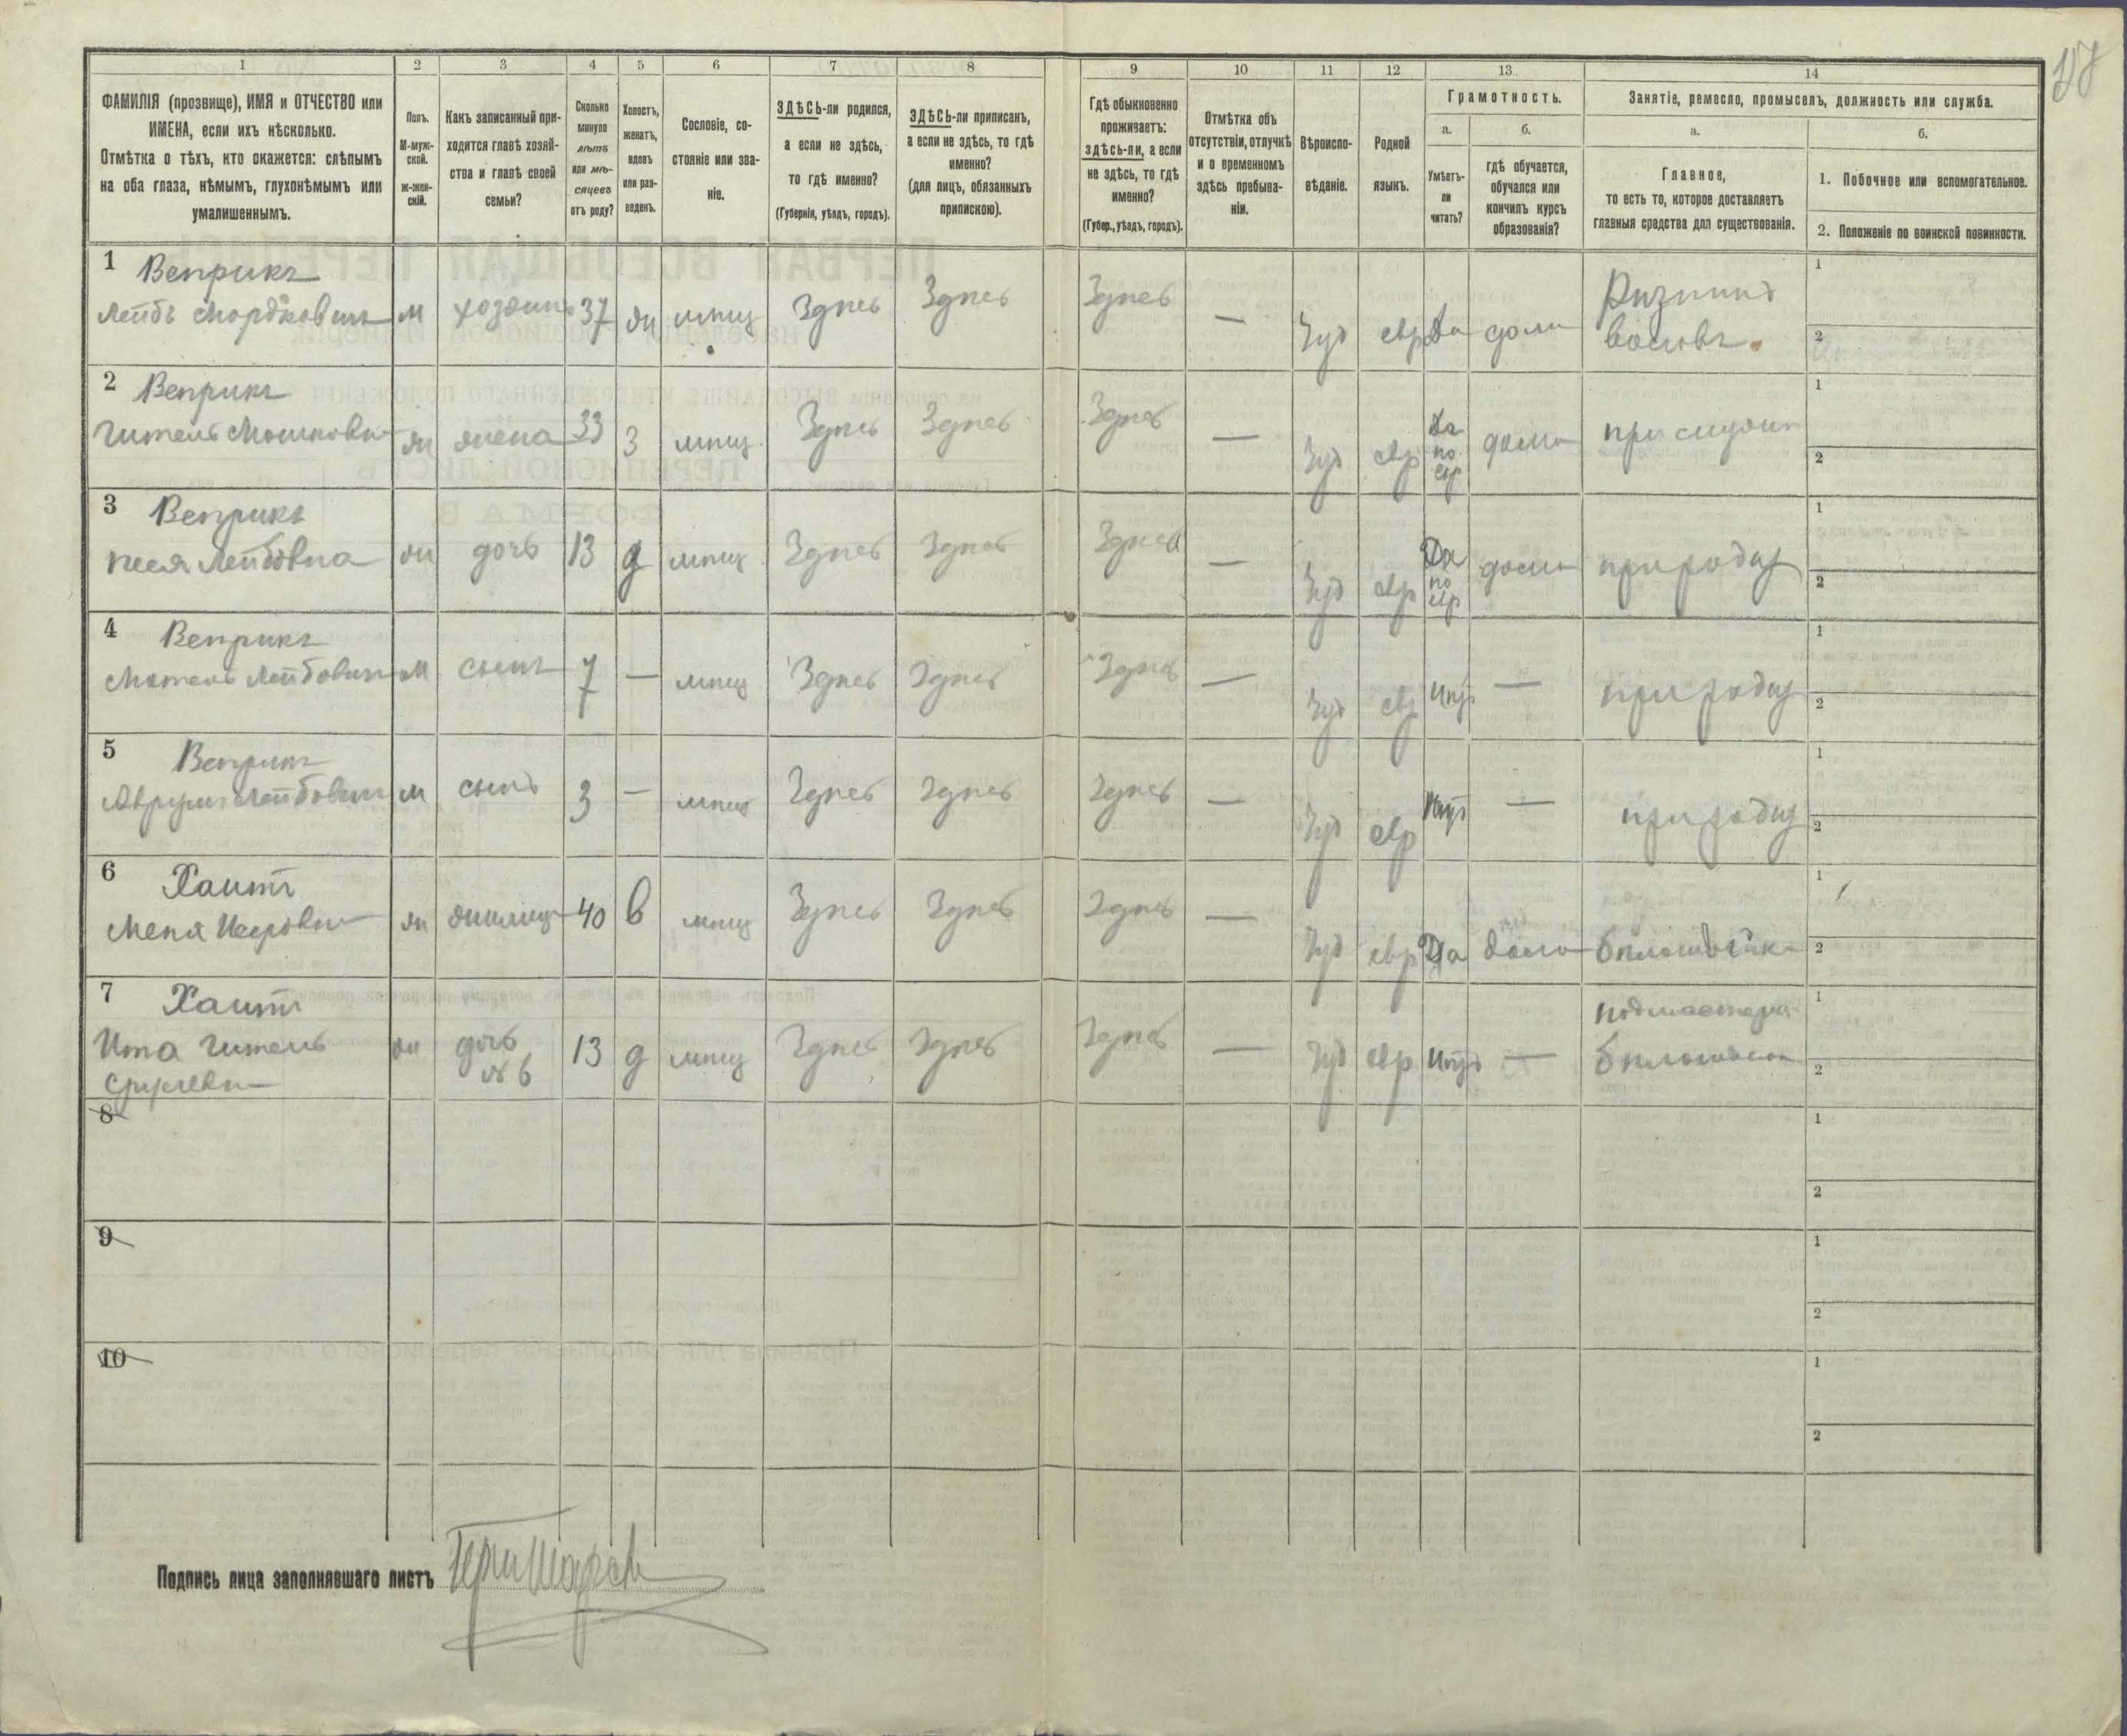 117
1
2
3
4
5
6
7
8
9
10
11
12
13
14
ФАМИЛІЯ (прозвище), ИМЯ и ОТЧЕСТВО или
ИМЕНА, если ихъ нѣсколько.
Отмѣтка о тѣхъ, кто окажется: слѣпымъ
на оба глаза, нѣмымъ, глухонѣмымъ или
умалишеннымъ.
Полъ.
М-муж-
ской.
ж-жен-
скій.
Какъ записанный при-
ходится главѣ хозяй-
ства и главѣ своей
семьи?
Сколько
минуло
лѣтъ
или мѣ-
сяцевъ
отъ роду?
Холостъ,
женатъ,
вдовъ
или раз-
веденъ.
Сословіе, со-
стояніе или зва-
ніе.
ЗДѢСЬ-ли родился,
а если не здѣсь,
то гдѣ именно?
(Губернія, уѣздъ, городъ).
ЗДѢСЬ-ли приписанъ,
а если не здѣсь, то гдѣ
именно?
(для лицъ, обязанныхъ
припискою).
Гдѣ обыкновенно
проживаетъ:
здѣсь-ли, а если
не здѣсь, то гдѣ
именно?
(Губер., уѣздъ, городъ).
Отмѣтка объ
отсутствіи, отлучкѣ
и о временномъ
здѣсь пребыва-
ніи.
Вѣроиспо-
вѣданіе.
Родной
языкъ.
Грамотность.
а.
Умѣетъ-
ли
читать?
б.
гдѣ обучается,
обучался или
кончилъ курсъ
образованія?
Занятіе, ремесло, промыселъ, должность или служба.
а.
Главное,
то есть то, которое доставляетъ
главныя средства для существованія.
б.
1. Побочное или вспомогательное.
2. Положеніе по воинской повинности.
1 Веприкъ
Лейбъ Мордковичъ м хозяинъ 37 ж мѣщ Здѣсь Здѣсь Здѣсь — Іуд евр Да дома Рѣзникъ
воловъ. 1 2
2 Веприкъ
Гитель Мошковна ж жена 33 з мѣщ. Здѣсь Здѣсь Здѣсь — Іуд евр Да по евр дома при мужѣ 1 2
3 Веприкъ
Песя Лейбовна ж дочь 13 д мѣщ Здѣсь Здѣсь Здѣсь — Іуд евр Да по евр дома при родит 1 2
4 Веприкъ
Мотель Лейбовичъ м сынъ 7 — мѣщ Здѣсь Здѣсь Здѣсь — Іуд евр Нѣтъ — при родит 1 2
5 Веприкъ
Аврумъ Лейбовичъ м сынъ 3 — мѣщ Здѣсь Здѣсь Здѣсь — Іуд евр Нѣтъ — при родит 2
6 Хаитъ
Меня ж жилица 40 в мѣщ Здѣсь Здѣсь Здѣсь — Іуд евр Да дома бѣлошвейка 1 2
7 Хаитъ
Ита Гитель
Срулевна ж дочь
№ 6 13 д мѣщ Здѣсь Здѣсь Здѣсь — Іуд евр Нѣтъ — подмастерья
1 2
8 1 2
9 1 2
10 1 2
Подпись лица заполнявшаго листъ